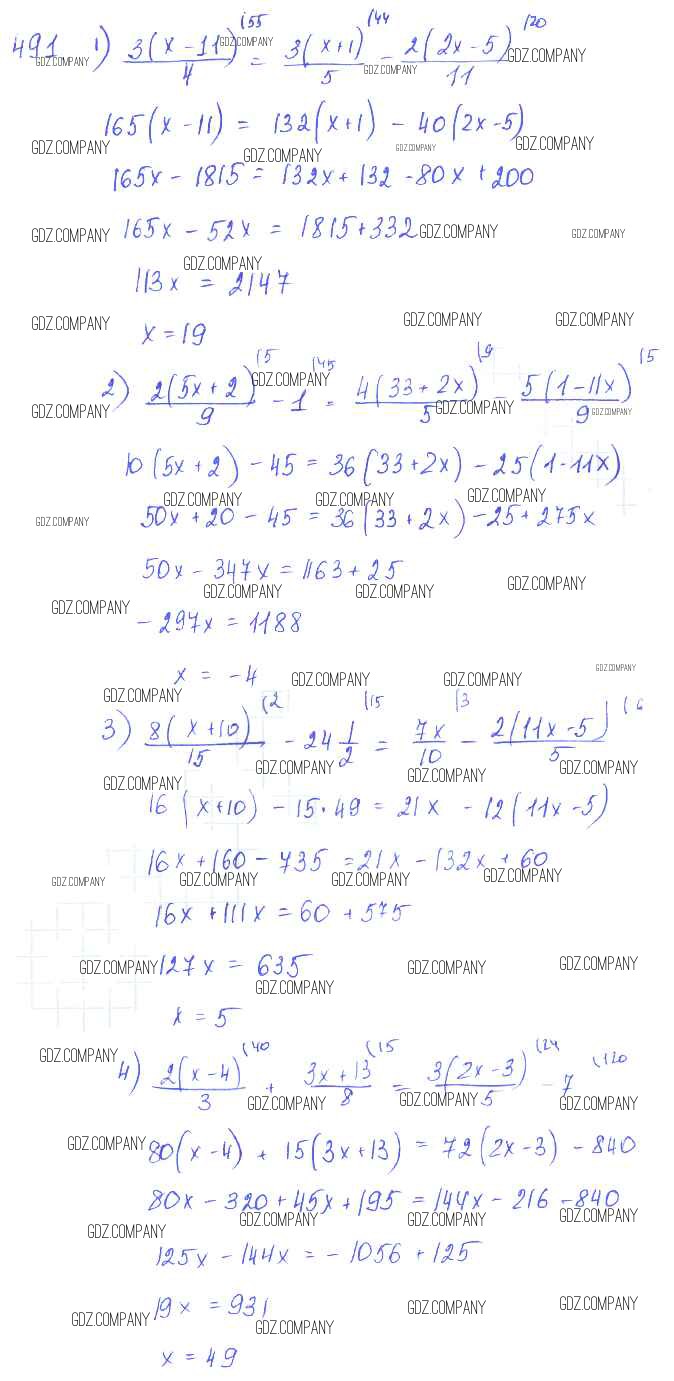 491 1) 3(x-11)/4 (55 = 3(x+1)/5 (44 - 2(2x-5)/11 (20
165(x-11) = 132(x+1) - 40(2x-5)
165x - 1815 = 132x + 132 - 80x + 200
165x - 52x = 1815 + 332
113x = 2147
x = 19
2) 2(5x+2)/9 (5 - 1 (45 = 4(33+2x)/5 (9 - 5(1-11x)/9 (5
10(5x+2) - 45 = 36(33+2x) - 25(1-11x)
50x + 20 - 45 = 36(33+2x) - 25 + 275x
50x - 347x = 1163 + 25
- 297x = 1188
x = -4
3) 8(x+10)/15 (2 - 24 1/2 (15 = 7x/10 (3 - 2(11x-5)/5 (6
16(x+10) - 15·49 = 21x - 12(11x-5)
16x + 160 - 735 = 21x - 132x + 60
16x + 111x = 60 + 575
127x = 635
x = 5
4) 2(x-4)/3 (40 + 3x+13/8 (15 = 3(2x-3)/5 (24 - 7 (120
80(x-4) + 15(3x+13) = 72(2x-3) - 840
80x - 320 + 45x + 195 = 144x - 216 - 840
125x - 144x = -1056 + 125
19x = 931
x = 49
GDZ.COMPANY